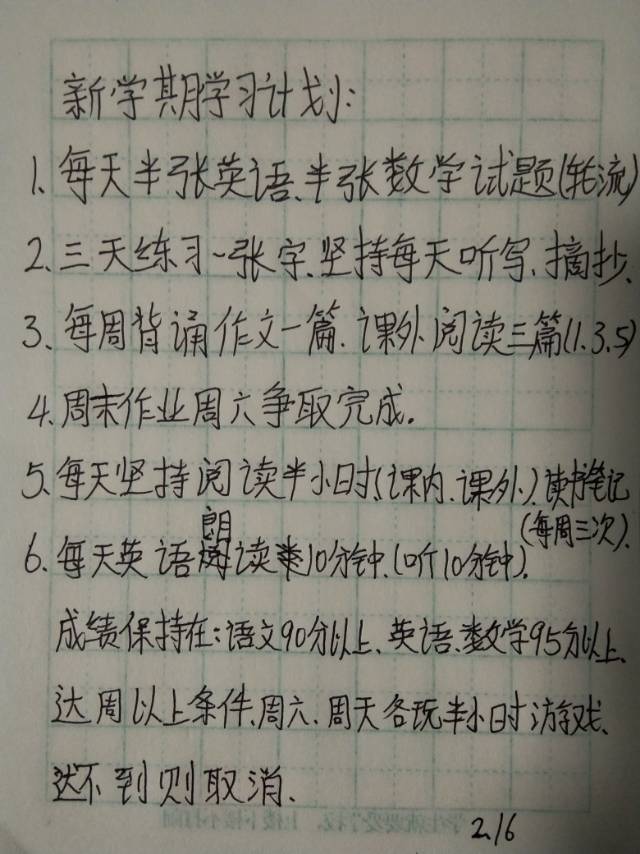 新学期学习计划:
1、每天半张英语、半张数学试题(轮流)
2、三天练习一张字、坚持每天听写、摘抄、
3、每周背诵作文一篇、课外阅读三篇(1.3.5)
4、周末作业周六争取完成。
5、每天坚持阅读半小时(课内、课外、)读书笔记
(每周三次)、
6、每天英语朗读10分钟、(听10分钟)、
成绩保持在:语文90分以上、英语、数学95分以上、
达周以上条件、周六、周天各玩半小时游戏、
达不到则取消、
2.16